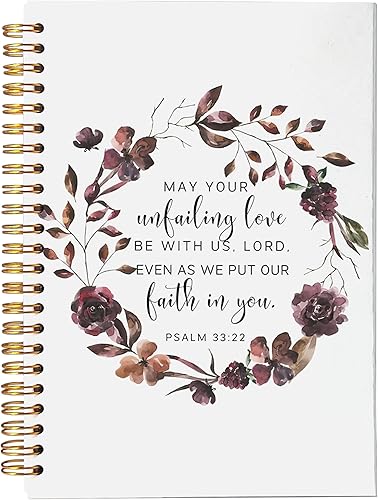 MAY YOUR
unfailing love
BE WITH US, LORD,
EVEN AS WE PUT OUR
faith in you.
PSALM 33:22